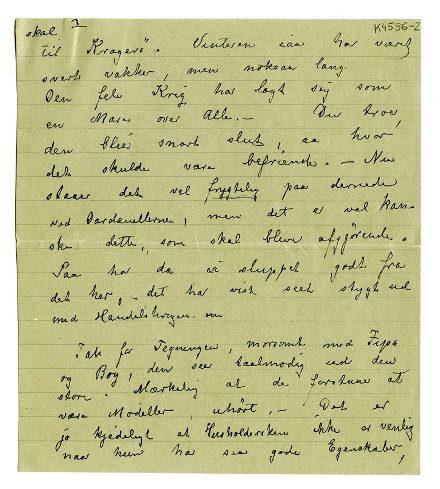 skal
K4536-2
til Kragerø. Vinteren iaa har været
svært vakker, men noksaa lang.
Den fele Krig har lagt sig som
en Mare over Alle. – Du troer,
den blir snart slut, aa hvor
det skulde være befriende. – Nu
staaer det vel frygtelig paa dernede
ved Dardanellerne, men det er vel kan-
ske dette, som skal blive afgjörende.
Saa har da vi sluppet godt fra
det her, – det har vist seet stygt ud
med Handelskrigen.
Tak for Tegningen, morsomt med Fips
og Boy, den ser taalmodig ud den
store. Mærkelig at de forstaar at
være Modeller, uhört. – Det er
jo kjedeligt at Husholdersken ikke er venlig
naar hun har saa gode Egenskaber,